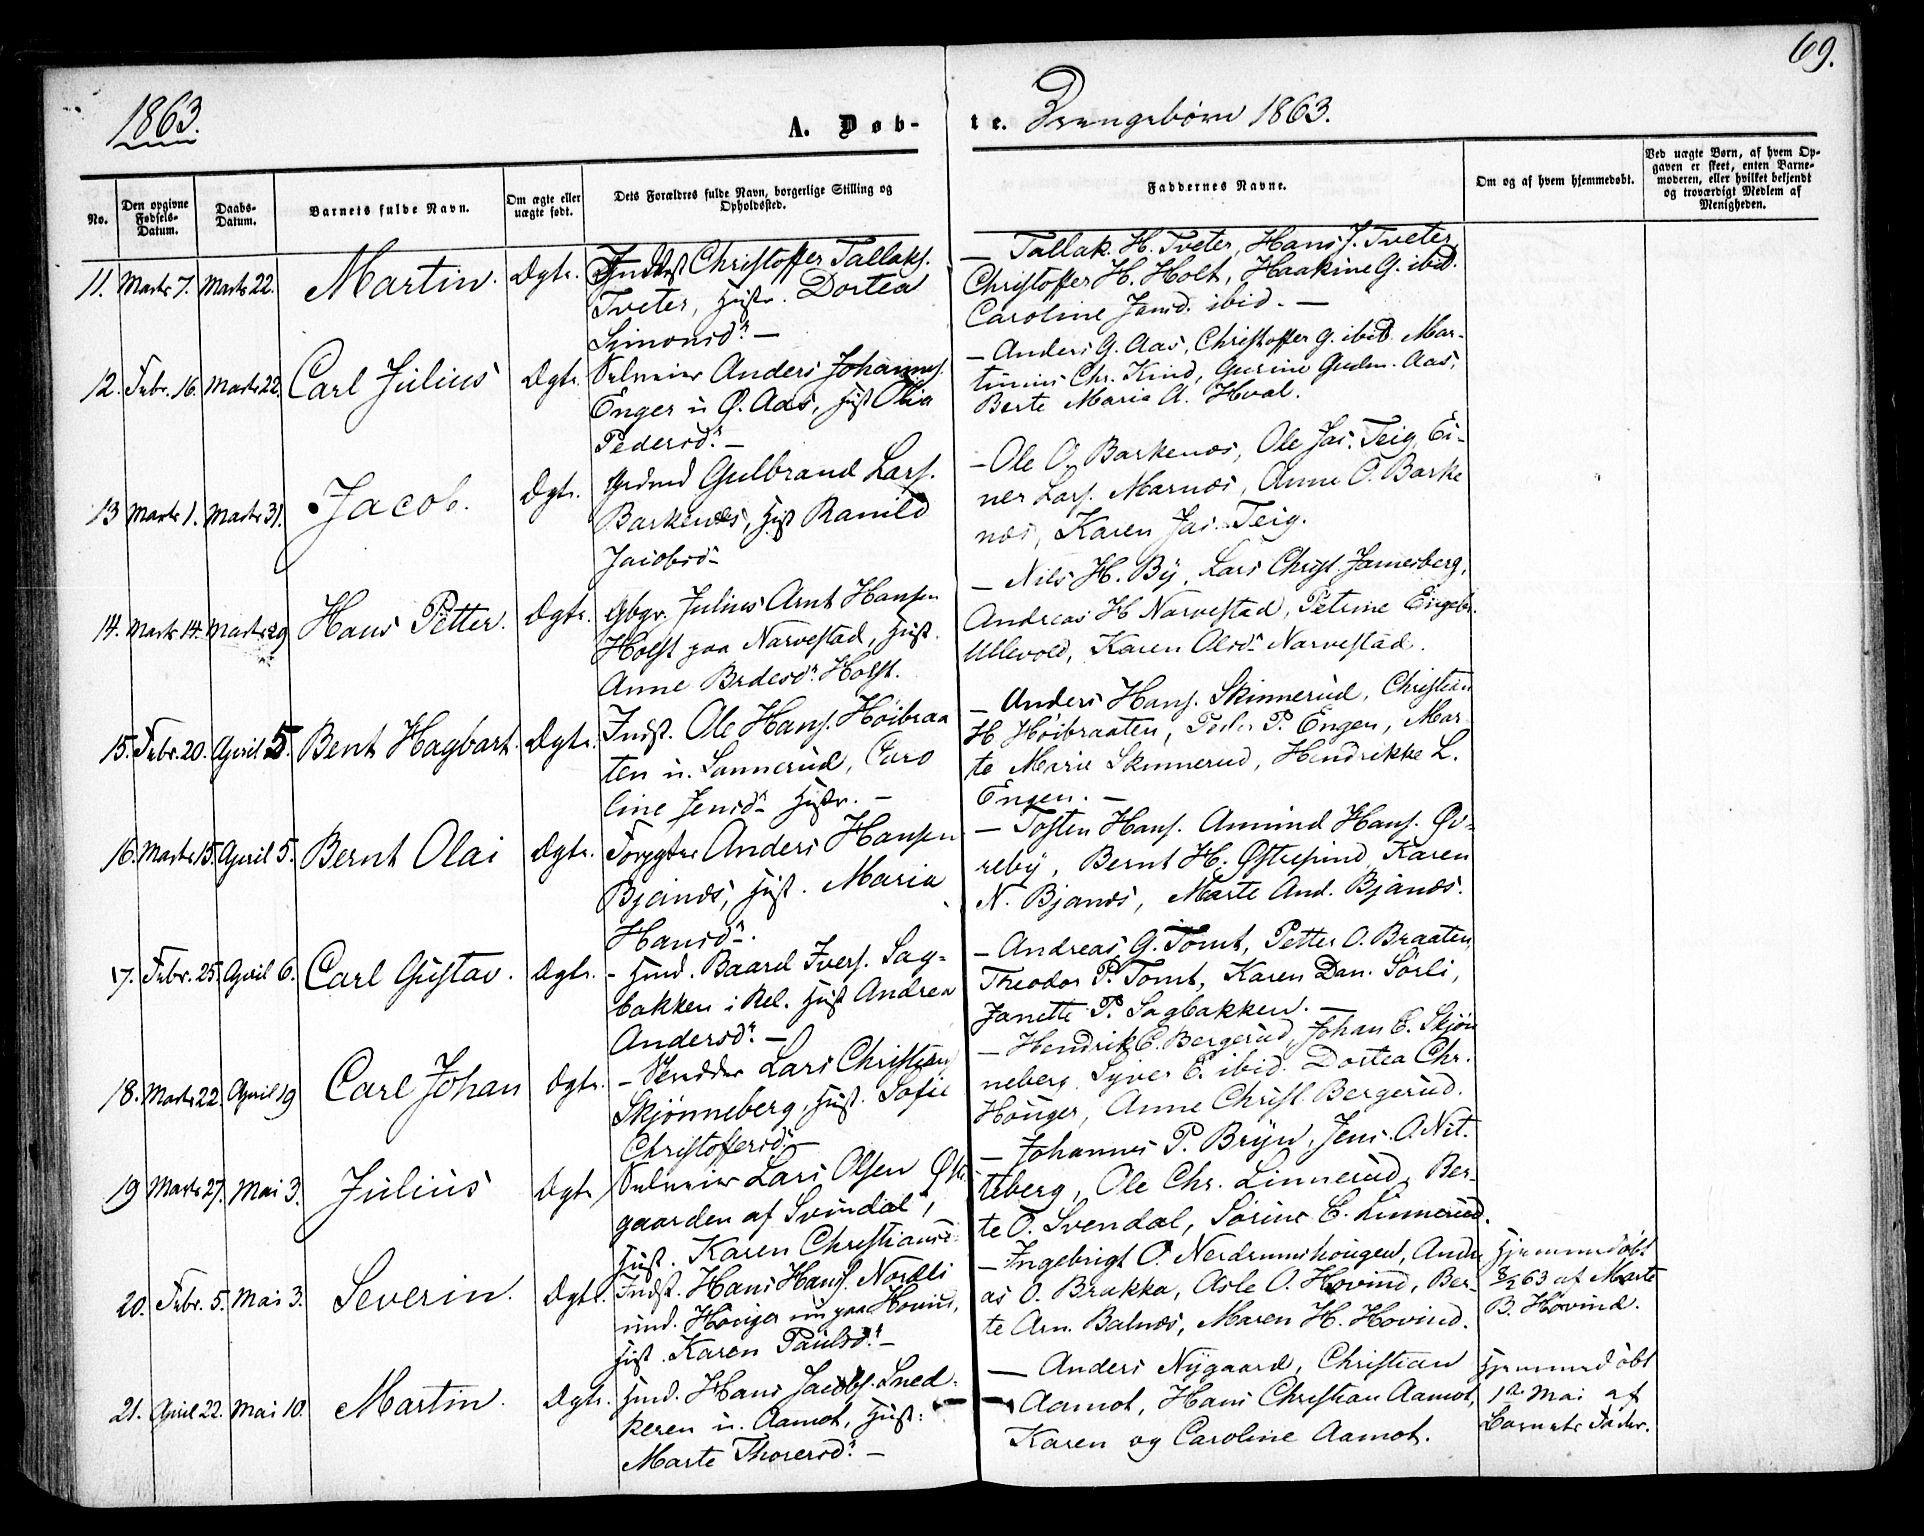 69.
1863.
A. Døb-
te. Drengebørn 1863.
No.
Den opgivne Fødsels-Datum.
Daabs-Datum.
Barnets fulde Navn.
Om ægte eller uægte født.
Dets Forældres fulde Navn, borgerlige Stilling og Opholdssted.
Faddernes Navne.
Om og af hvem hjemmedøbt.
Ved uægte Børn, af hvem Op-
gaven er skeet, enten Barne-
moderen, eller hvilket bekjendt
og troværdigt Medlem af
Menigheden.
11. Marts 7. Marts 22. Martin. Ægte. Indst Christoffer Tallaks.
Tveter, Hustr. Dortea
Simonsd. —
— Tallak. H. Tveter, Hans J. Tveter,
Christoffer H. Holt, Haakine G. ibid.
Caroline Jensd. ibid. —
12. Febr. 16. Marts 22. Carl Julius Ægte. Selveier Anders Johannes.
Enger u Ø. Aas, Hust Olia
Pedersd. —
— Anders G. Aas, Christoffer G. ibid Mar-
tinius Chr. Kind, Gurine Gudm. Aas,
Berte Maria A. Hval.
13 Marts 1. Marts 31. Jacob. Ægte. Grdmd Gulbrand Lars.
Barkenæs, Hust Ranild
Jacobsd. —
— Ole O. Barkenæs, Ole Jas. Teig, Ei-
ner Lars. Marnæs, Anne O. Barke
næs, Karen Jas. Teig.
14. Marts 14. Marts 29 Hans Petter. Ægte. Gbgr. Julius Arnt Hansen
Holst paa Narvestad, Hust.
Anne Brdesd. Holst.
— Nils H. By, Lars Christ. Jamesberg,
Andreas H Narvestad, Petrine Engebr.
Ullevold, Karen Olsd. Narvestad.
15. Febr. 20. April 5. Bent Hagbart. Ægte. Indst. Ole Hans. Höibraa
ten u. Sannerud, Caro
line Jensd. Hustr. —
— Anders Hans. Skinnerud, Christian
H Höibraaten, Peder P. Engen, Mar-
te Marie Skinnerud, Hendrikke L.
Engen. —
16. Marts 15. April 5. Bernt Olai Ægte. Forpgter Anders Hansen
Bjanæs, Hust. Maria
Hansd.
— Tosten Hans. Amund Hans. Øv-
reby, Bernt H. Østresind, Karen
N. Bjanæs, Marte And. Bjanæs.
17. Febr. 25. April 6. Carl Gustav. Ægte. — Hmd. Baard Ivers. Sag-
bakken i Rel. Hust Andrea
Andersd. —
— Andreas G. Tomt, Petter O. Braaten,
Theodor P. Tomt, Karen Dan. Sörli,
Janette P. Sagbakken. —
18. Marts 22. April 19 Carl Johan Ægte. — Lars Christian
Skjönneberg, Hust. Sofie
Christoffersd. —
— Hendrik E. Bergerud, Johan E. Skjön
neberg, Syver E. ibid. Dortea Chr.
Houger, Anne Christ. Bergerud.
19 Marts 27. Mai 3. Julius Ægte Selveier Lars Olsen Øst
gaarden af Svindal,
Hust. Karen Christiansd.
— Johannes P. Bryn, Jens. O. Nit.
teberg, Ole Chr. Linnerud, Ber-
te O. Svendal, Sörine E. Linnerud.
20. Febr. 5. Mai 3. Severin. Ægte. Indst. Hans Hans. Nordli
und. Houger nu paa Hovind,
Hust. Karen Paulsd. —
— Ingebrigt O. Nerdrumshougen, Andre
as O. Brakka, Asle O. Hovind, Ber-
te Arn. Balnæs, Maren H. Hovind.
Hjemmedöbt
8/2 63 af Marte
B. Hovind.
21. April 22. Mai 10. Martin. Ægte. Hmd. Hans Jacobs. Sned-
keren u. Aamot, Hust:
Marte Thoresd. —
— Anders Nygaard, Christian
Aamot, Hans Christian Aamot,
Karen og Caroline Aamot.
Hjemmedöbt
1ste Mai af
Barnets Fader.